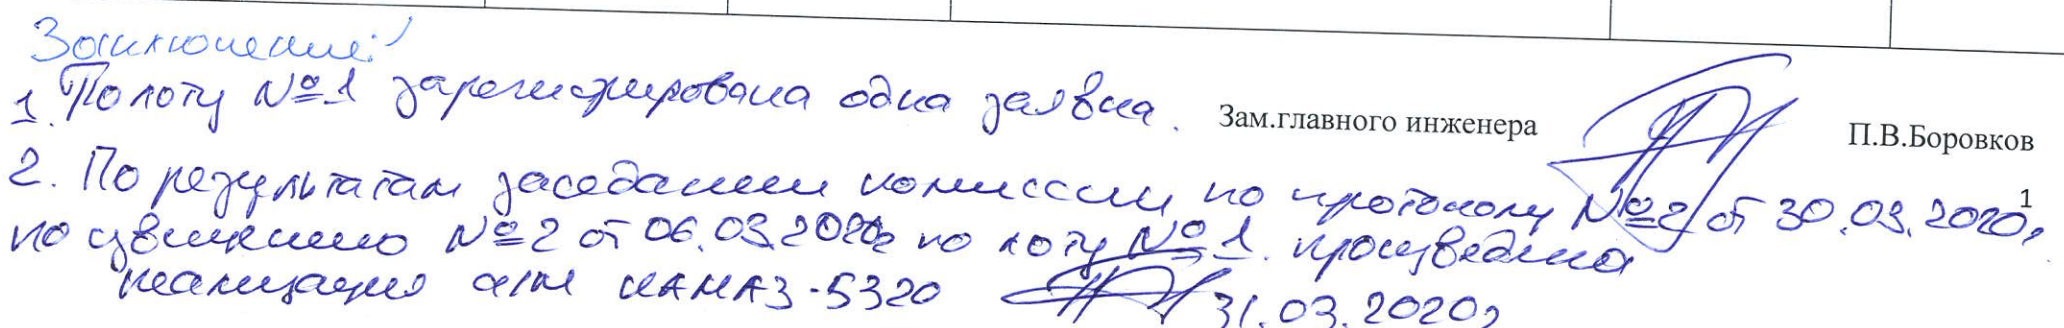 Заключение:
1. По лоту №1 зарегистрирована одна заявка.
Зам.главного инженера
П.В.Боровков
2. По результатам заседании комиссии по протоколу №2 от 30.03.2020г
1
по извещению №2 от 06.03.2020г по лоту №1 произведена
реализация а/м КАМАЗ-5320 31.03.2020г